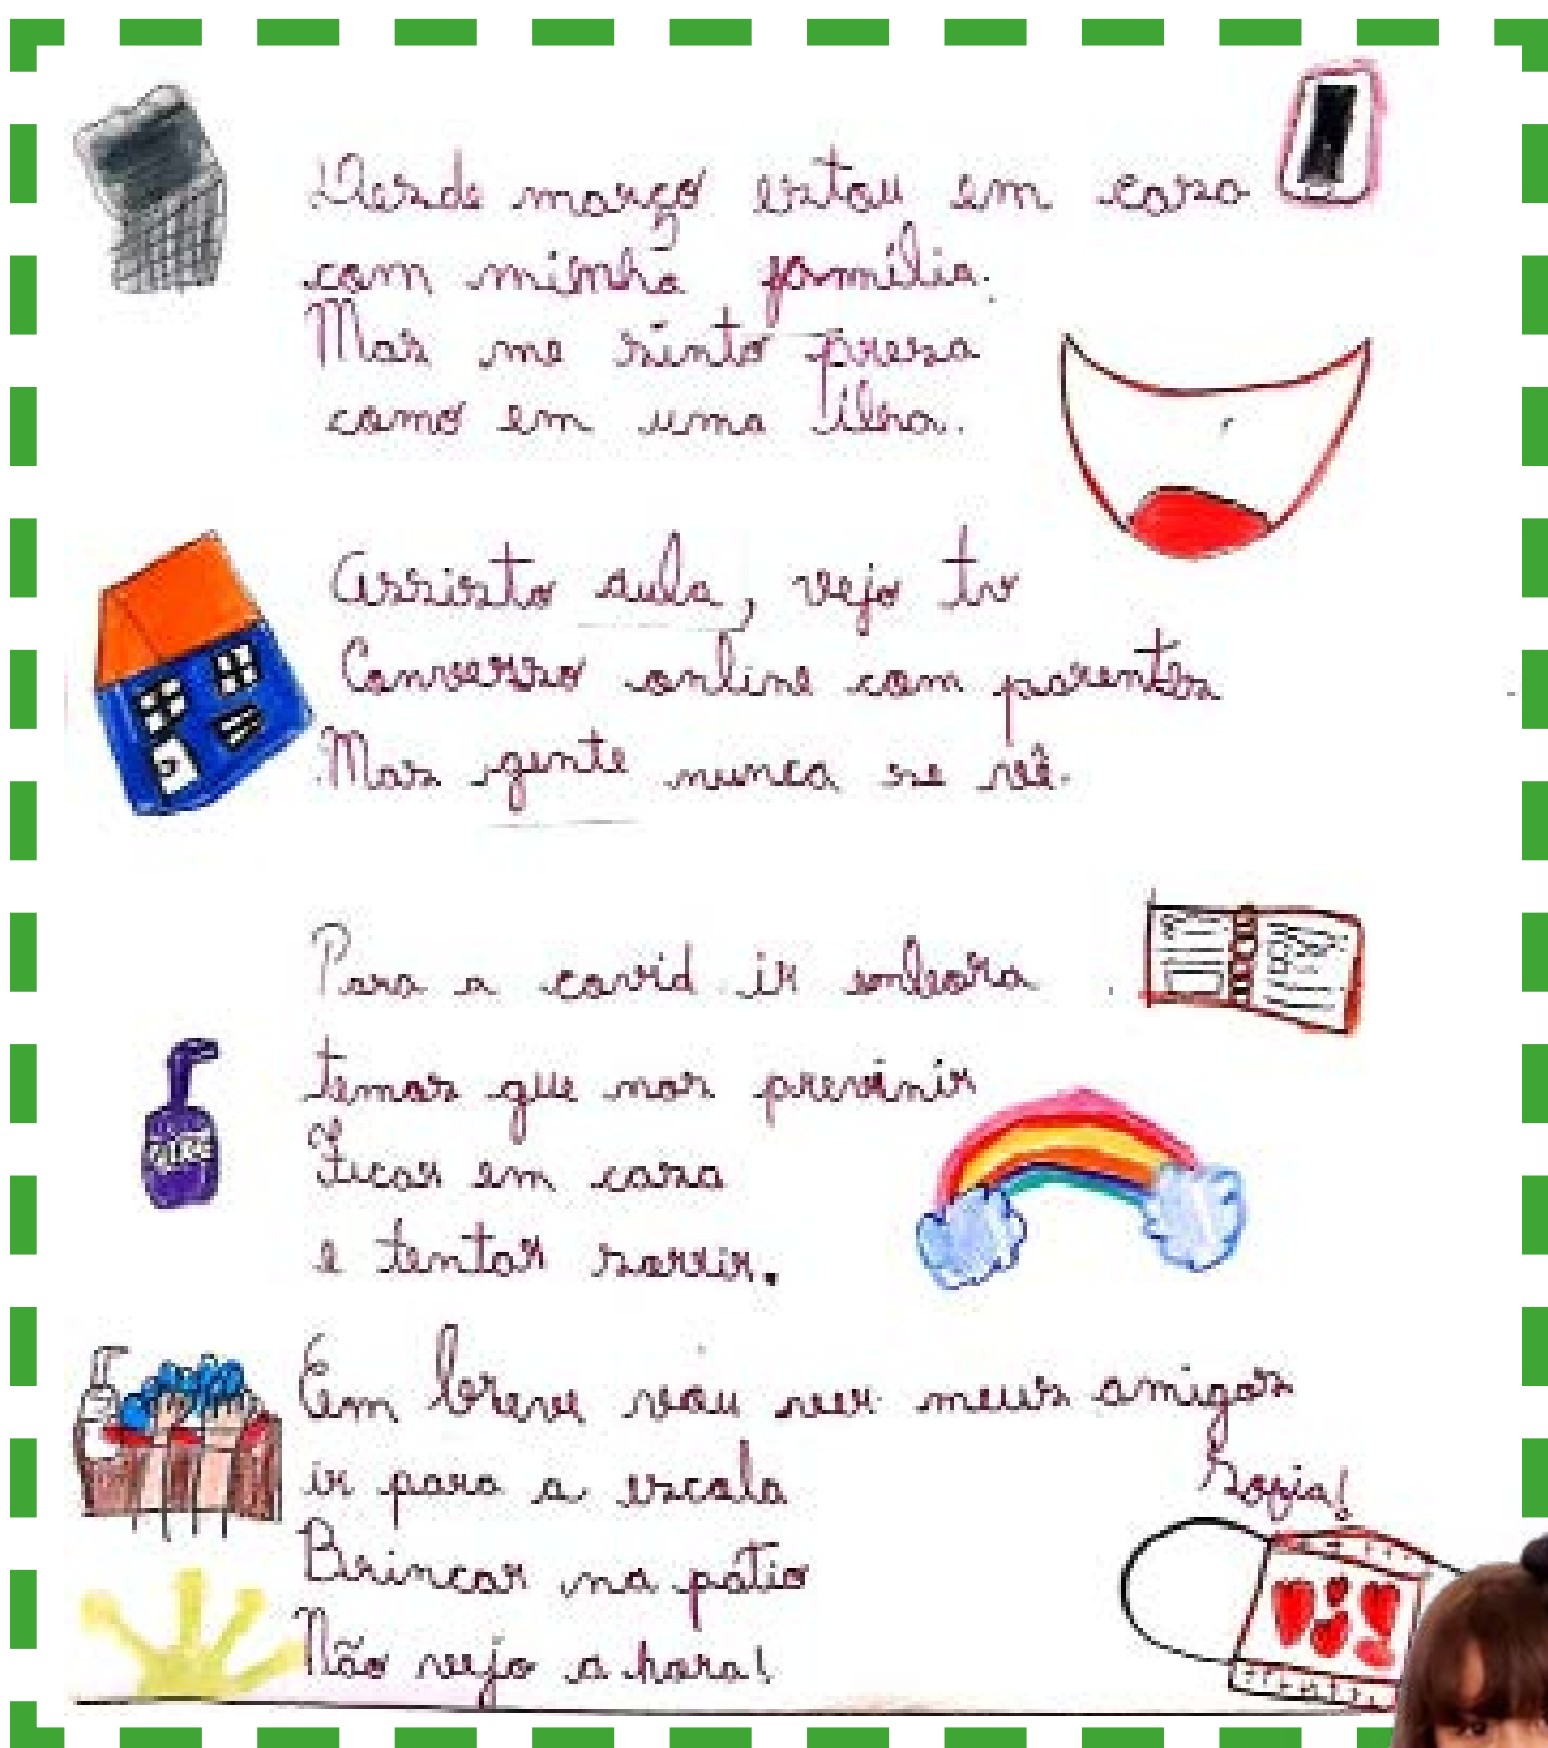 Desde março estou em casa
com minha família.
Mas me sinto presa
como em uma ilha.
Assisto aula, vejo tv
Converso online com parentes
Mas gente nunca se vê.
Para a covid ir embora
temos que nos previnir
Ficar em casa
e tentar sorrir.
Em breve vou ver meus amigos
ir para a escola
Brincar no pátio
Não vejo a hora!
Sofia!